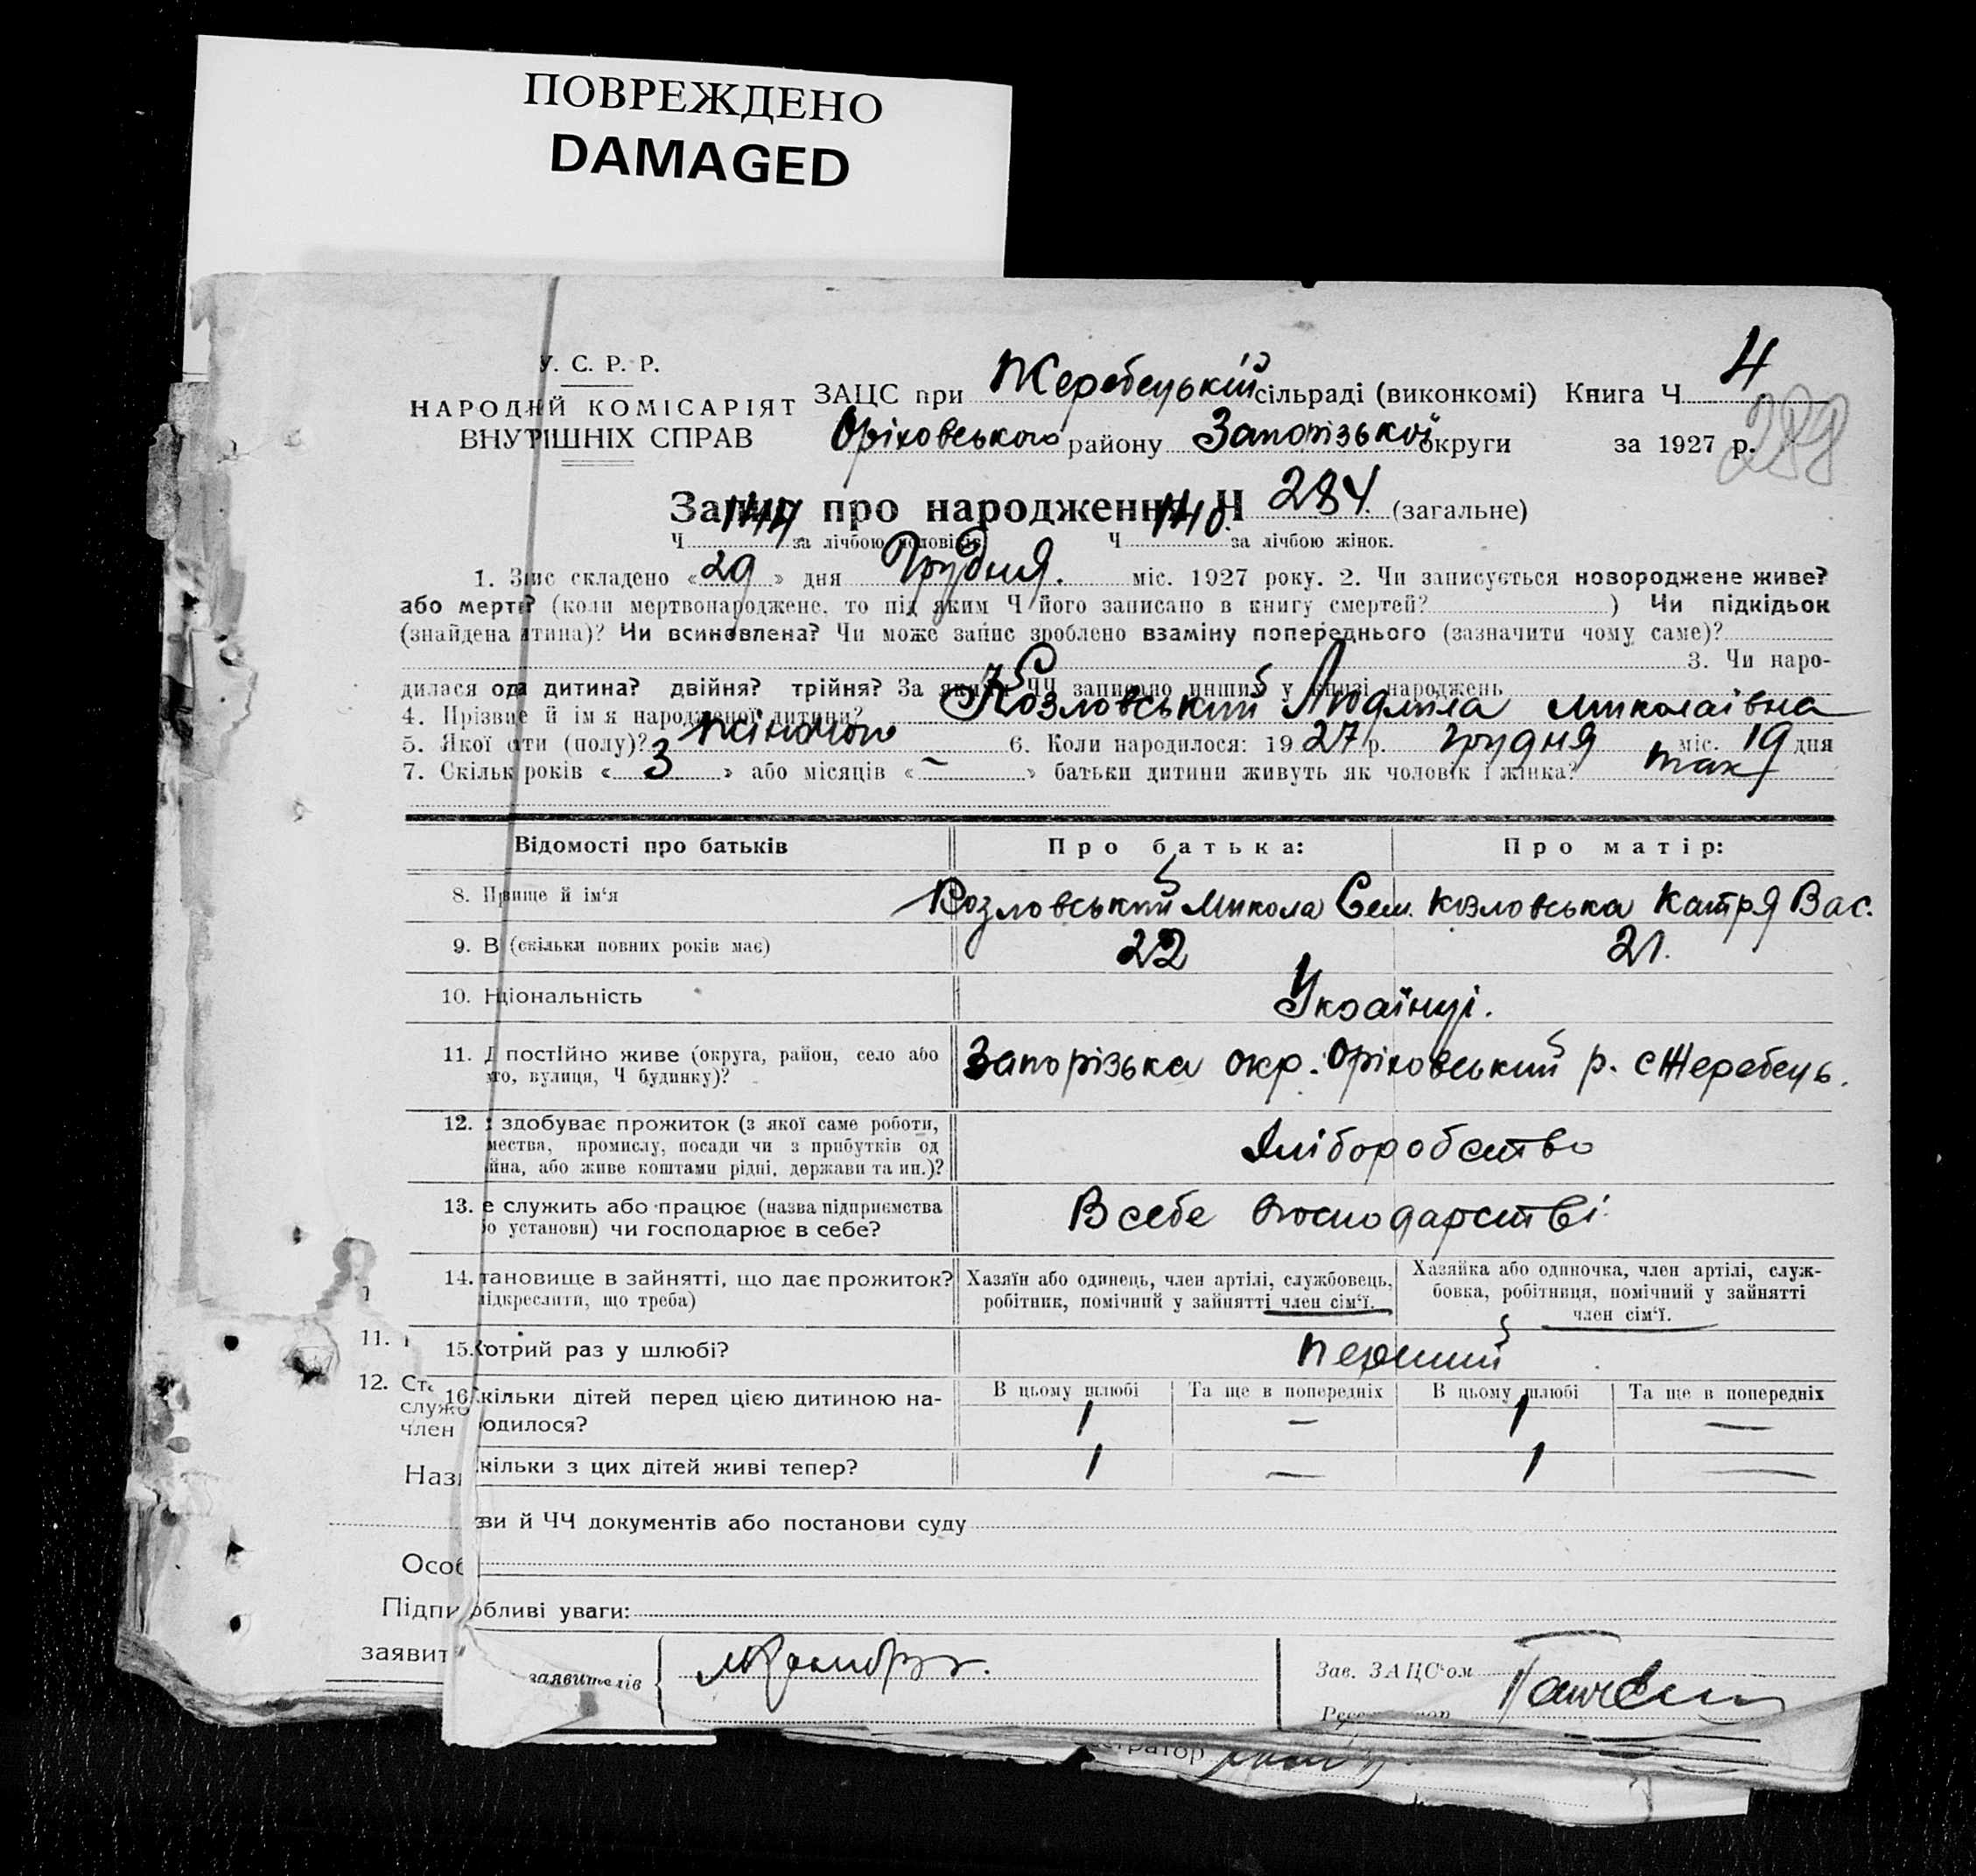 ПОВРЕЖДЕНО
DAMAGED
У. С. Р. Р.
НАРОДНІЙ КОМІСАРІЯТ
ВНУТРІШНІХ СПРАВ
ЗАЦС при Жеребецькій сільраді (виконкомі) Книга Ч 4
Оріховського району Запорізької округи за 1927 р.
288
Запис про народження Ч 284 (загальне)
Ч 144 за лічбою чоловіків Ч 140. за лічбою жінок.
1. Запис складено «29» дня Грудня. міс. 1927 року. 2. Чи записується новороджене живе?
або мертве? (коли мертвонароджене, то під яким Ч його записано в книгу смертей? ) Чи підкідьок
(знайдена дитина)? Чи всиновлена? Чи може запис зроблено взаміну попереднього (зазначити чому саме)?
3. Чи наро-
дилася одна дитина? двійня? трійня? За якими ЧЧ записано инших у книзі народжень
4. Прізвище й ім я народженої дитини? Козловський Людмила Миколаівна
5. Якої стати (полу)? жіночого 6. Коли народилося: 1927 р. грудня міс. 19 дня
7. Скільки років «3» або місяців «–» батьки дитини живуть як чоловік і жінка? так
Відомості про батьків Про батька: Про матір:
8. Прізвище й ім‘я Козловський Микола Сем. Козловська Катря Вас.
9. В (скільки повних років має) 22 21.
10. Національність Українці.
11. Д постійно живе (округа, район, село або
місто, вулиця, Ч будинку)? Запорізька окр. Оріховський р. с Жеребець.
12. здобуває прожиток (з якої саме роботи,
мества, промислу, посади чи з прибутків од
йна, або живе коштами рідні, держави та ин.)? Хліборобство
13. е служить або працює (назва підприємства
о установи) чи господарює в себе? В себе господарстві.
14. тановище в зайнятті, що дає прожиток?
підкреслити, що треба)
Хазяїн або одинець, член артілі, службовець,
робітник, помічний у зайнятті член сім‘ї.
Хазяйка або одиночка, член артілі, служ-
бовка, робітниця, помічний у зайнятті
член сім‘ї.
15. Котрий раз у шлюбі? перший
16. Скільки дітей перед цією дитиною на-
родилося?
В цьому шлюбі Та ще в попередніх В цьому шлюбі Та ще в попередніх
1 – 1 –
кільки з цих дітей живі тепер? 1 – 1 –
зви й ЧЧ документів або постанови суду
обливі уваги:
заявителів
Зав. ЗАЦС‘ом
11.
12. Ста
служб
член
Назв
Особ
Підпи
заявит